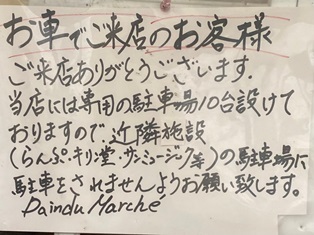 お車でご来店のお客様
ご来店ありがとうございます.
当店には専用の駐車場10台設けて
おりますので、近隣施設
(らんぷ・キリン堂・サンミュージック等)の駐車場に
駐車をされませんようお願い致します。
Pain du Marché